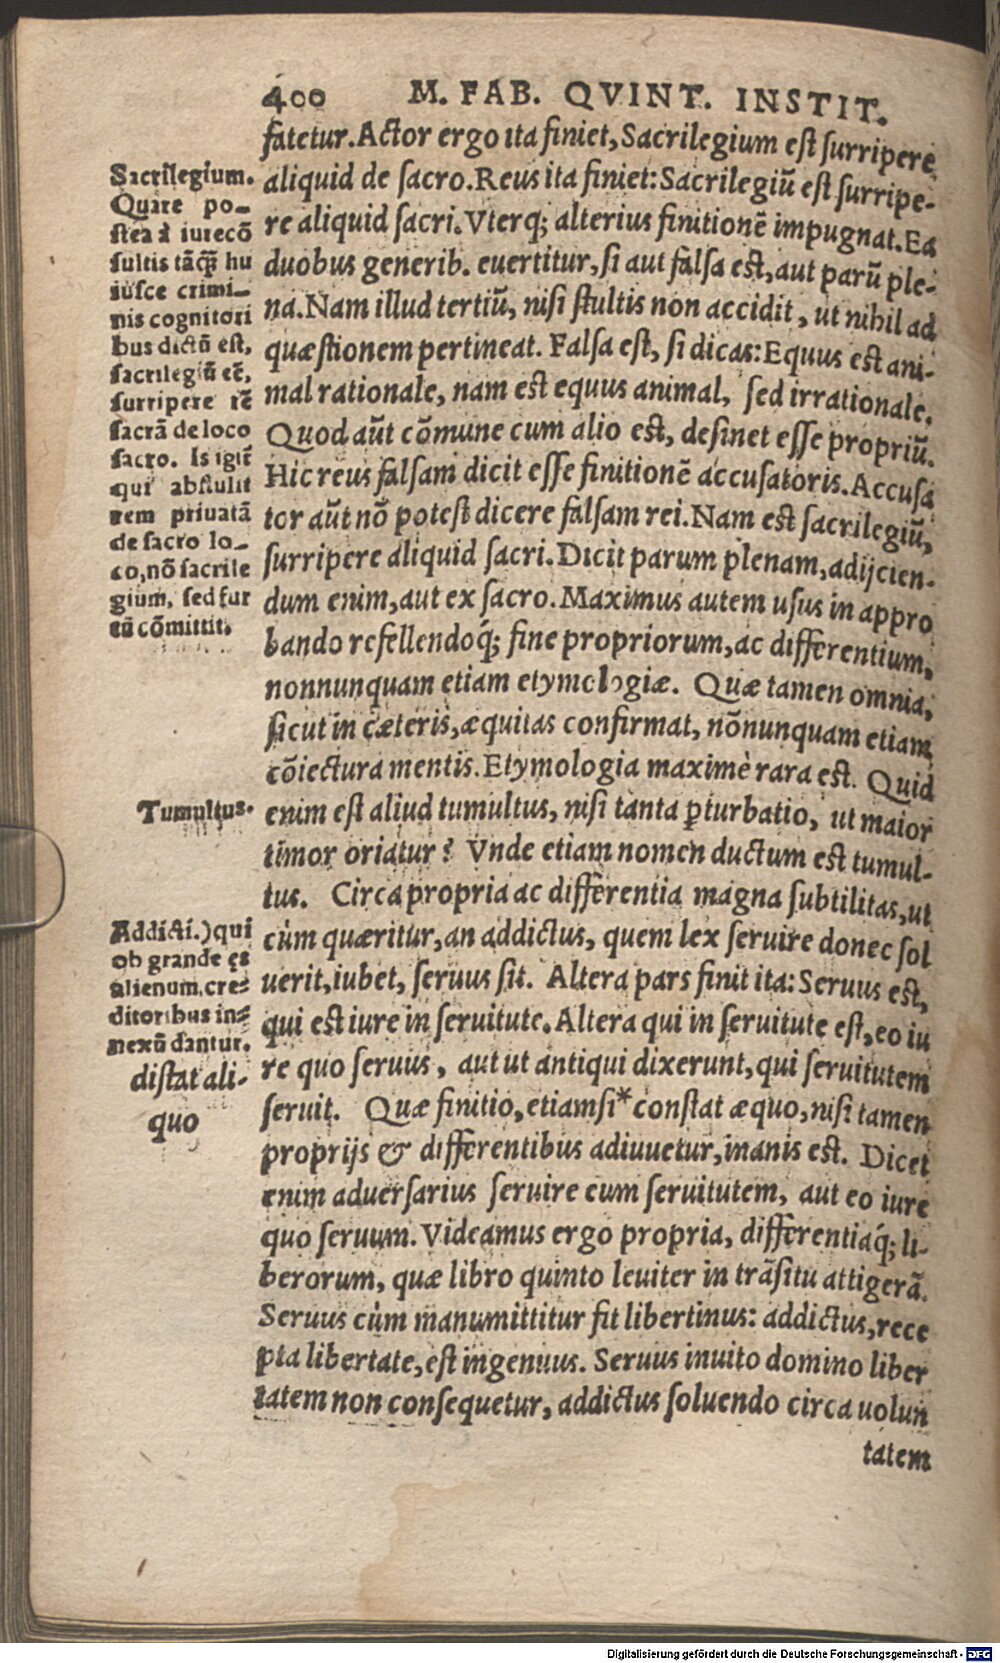 400 M. FAB. QVINT. INSTIT.
fatetur. Actor ergo ita finiet, Sacrilegium est surripere
aliquid de sacro. Reus ita finiet: Sacrilegiũ est surripe-
re aliquid sacri. Vterq; alterius finitionẽ impugnat. Ea
duobus generib. euertitur, si aut falsa est, aut parũ ple-
na. Nam illud tertiũ, nisi stultis non accidit, ut nihil ad
quæstionem pertineat. Falsa est, si dicas: Equus est ani-
mal rationale, nam est equus animal, sed irrationale.
Quod aũt cõmune cum alio est, desinet esse propriũ.
Hic reus falsam dicit esse finitionẽ accusatoris. Accusa
tor aũt nõ potest dicere falsam rei. Nam est sacrilegiũ,
surripere aliquid sacri. Dicit parum plenam, adijcien-
dum enim, aut ex sacro. Maximus autem usus in appro
bando refellendoq́; fine propriorum, ac differentium,
nonnunquam etiam etymologiæ. Quæ tamen omnia,
sicut in cæteris, æquitas confirmat, nõnunquam etiam
cõiectura mentis. Etymologia maximè rara est. Quid
enim est aliud tumultus, nisi tanta ꝑturbatio, ut maior
timor oriatur? Vnde etiam nomen ductum est tumul-
tus. Circa propria ac differentia magna subtilitas, ut
cùm quæritur, an addictus, quem lex seruire donec sol
uerit, iubet, seruus sit. Altera pars finit ita: Seruus est,
qui est iure in seruitute. Altera qui in seruitute est, eo iu
re quo seruus, aut ut antiqui dixerunt, qui seruitutem
seruit. Quæ finitio, etiamsi* constat æquo, nisi tamen
proprijs & differentibus adiuuetur, inanis est. Dicet
enim aduersarius seruire eum seruitutem, aut eo iure
quo seruum. Videamus ergo propria, differentiaq́; li-
berorum, quæ libro quinto leuiter in trãsitu attigerã.
Seruus cùm manumittitur fit libertinus: addictus, rece
pta libertate, est ingenuus. Seruus inuito domino liber
tatem non consequetur, addictus soluendo circa uolun
tatem
Sacrilegium.
Quare po-
stea à iurecõ
sultis tãcꝗ̃ hu
iusce crimi-
nis cognitori
bus dictũ est,
sacrilegiũ eẽ,
surripere rẽ
sacrã de loco
sacro. Is igit̃
qui abstulit
rem priuatã
de sacro lo-
co, nõ sacrile
gium, sed fur
tũ cõmittit.
Tumultus.
Addicti.) qui
ob grande ęs
alienum, cre-
ditoribus in-
nexũ dantur.
distat ali-
quo
Digitalisierung gefördert durch die Deutsche Forschungsgemeinschaft - DFG